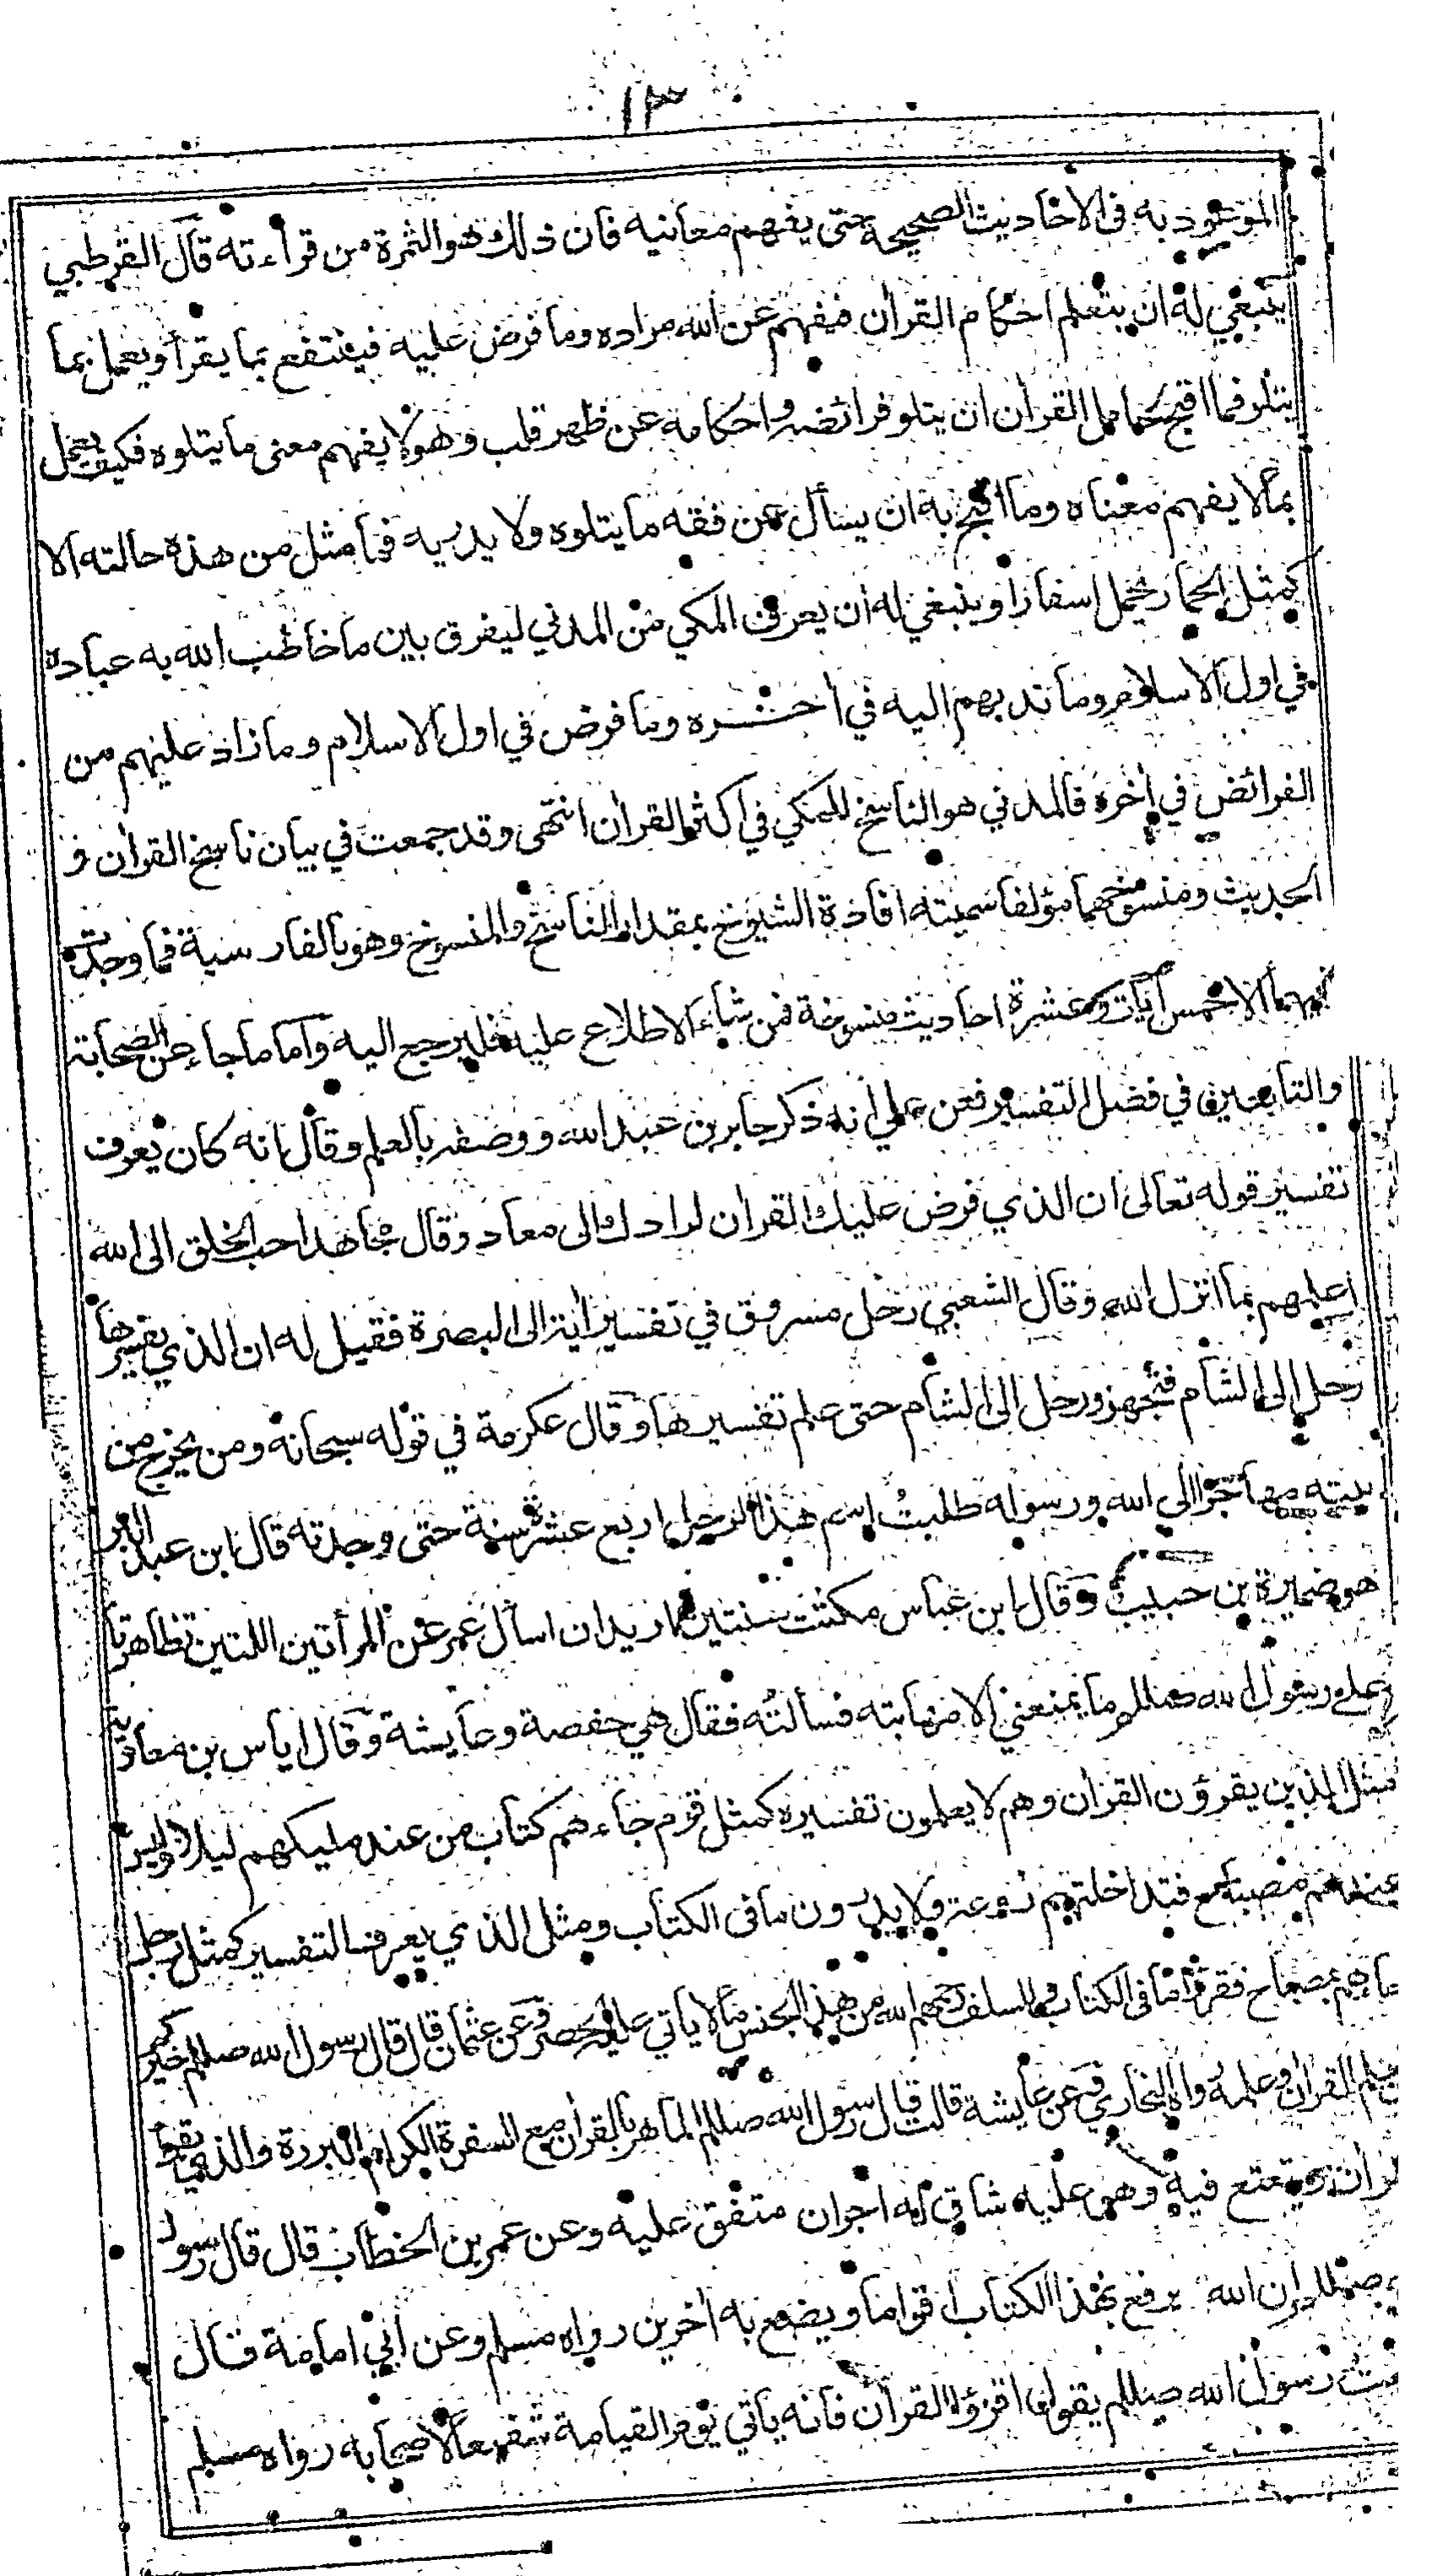 ١٣
الموعود به فى الاحاديث الصحيحة حتى يفهم معانيه فان ذلك هو الثمرة من قراءته قال القرطبي
ينبغي له ان يتعلم احكام القران فيفهم عن الله مراده وما فرض عليه فينتفع بما يقرأ ويعمل بما
يتلو فما اقبح بحامل القران ان يتلو فرائضه واحكامه عن ظهر قلب وهو لا يفهم معنى ما يتلوه فكيف يعمل
بما لا يفهم معناه وما اقبح به ان يسأل عن فقه ما يتلوه ولا يدريه فما مثل من هذه حالته الا
كمثل الحمار يحمل اسفارا وينبغي له ان يعرف المكي من المدني ليفرق بين ما خاطب الله به عباده
في اول الاسلام وما ندبهم اليه في اخره وما فرض في اول الاسلام وما زاد عليهم من
الفرائض في اخره فالمدني هو الناسخ للمكي في اكثر القران انتهى وقد جمعت في بيان ناسخ القران و
الحديث ومنسوخهما مؤلفا سميته افادة الشيوخ بمقدار الناسخ والمنسوخ وهو بالفارسية فما وجدت
فيهما الا خمس آيات وعشرة احاديث منسوخة فمن شاء الاطلاع عليه فليرجع اليه وأما ما جاء عن الصحابة
والتابعين في فضل التفسير فعن علي انه ذكر جابر بن عبد الله ووصفه بالعلم وقال انه كان يعرف
تفسير قوله تعالى ان الذي فرض عليك القران لرادك الى معاد وقال مجاهد احب الخلق الى الله
اعلمهم بما انزل الله وقال الشعبي رحل مسروق في تفسير اية الى البصرة فقيل له ان الذي يفسرها
رحل إلى الشام فتجهز ورحل الى الشام حتى علم تفسيرها وقال عكرمة في قوله سبحانه ومن يخرج من
بيته مهاجرا الى الله ورسوله طلبتُ اسم هذا الرجل اربع عشرة سنة حتى وجدته قال ابن عبد البر
هو ضميرة بن حبيب وقال ابن عباس مكثت سنتين ما اريد ان اسأل عمر عن المرأتين اللتين تظاهرتا
على رسول الله صللم ما يمنعني إلا مهابته فسألتُه فقال هي حفصة وعايشة وقال اياس بن معاوية
مثل الذين يقرؤن القران وهم لا يعلمون تفسيره كمثل قوم جاءهم كتاب من عند مليكهم ليلا وليس
عندهم مصباح فتداخلتهم روعة ولا يدرون ما فى الكتاب ومثل الذي يعرف التفسير كمثل رجل
جاءهم بمصباح فقرؤا ما فى الكتاب وللسلف رحمهم الله من هذا الجنس ما لا يأتي عليه الحصر وعن عثمان قال قال رسول الله صللم خيركم
تعلم القران وعلمه رواه البخاري وعن عايشة قالت قال رسول الله صللم الماهر بالقران مع السفرة الكرام البررة والذي يقرأ
القران ويتعتع فيه وهو عليه شاق له اجران متفق عليه وعن عمر بن الخطاب قال قال رسول
صللم ان الله يرفع بهذا الكتاب اقواما ويضع به اخرين رواه مسلم وعن ابي امامة قال
رسول الله صللم يقول اقرؤا القران فانه يأتي يوم القيامة شفيعا لاصحابه رواه مسلم